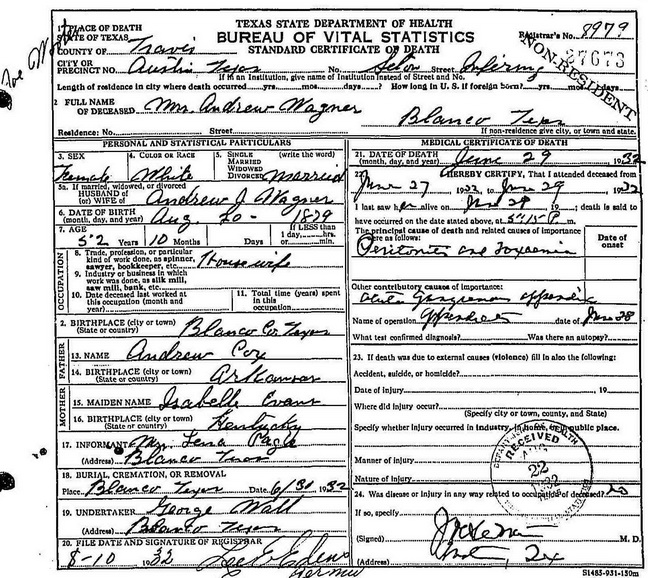 TEXAS STATE DEPARTMENT OF HEALTH
BUREAU OF VITAL STATISTICS
STANDARD CERTIFICATE OF DEATH
Registrar's No. 8979
27673
NON-RESIDENT
1 PLACE OF DEATH
STATE OF TEXAS
COUNTY OF Travis
CITY OR PRECINCT NO. Austin Texas No. Seton Street Infirmy
If in an Institution, give name of Institution instead of Street and No.
Length of residence in city where death occurred yrs. mos. days. How long in U. S. if foreign born? yrs. mos. days
2 FULL NAME OF DECEASED Mrs. Andrew Wagner
Residence: No. Street Blanco Texas
If non-residence give city, or town and state.
PERSONAL AND STATISTICAL PARTICULARS
3. SEX Female
4. COLOR OR RACE White
5. SINGLE MARRIED WIDOWED DIVORCED (write the word) Married
5a. If married, widowed, or divorced HUSBAND OF (or) WIFE OF Andrew J Wagner
6. DATE OF BIRTH (month, day, and year) Aug. 20 - 1879
7. AGE 52 Years 10 Months Days If LESS than 1 day, hrs. or min.
OCCUPATION
8. Trade, profession, or particular kind of work done, as spinner, sawyer, bookkeeper, etc. Housewife
9. Industry or business in which work was done, as silk mill, saw mill, bank, etc.
10. Date deceased last worked at this occupation (month and year)
11. Total time (years) spent in this occupation
2. BIRTHPLACE (city or town) (State or country) Blanco Co Texas
FATHER
13. NAME Andrew Cox
14. BIRTHPLACE (city or town) (State or country) Arkansas
MOTHER
15. MAIDEN NAME Isabelle Evans
16. BIRTHPLACE (city or town) (State or country) Kentucky
17. INFORMANT Mrs Lena Page
(Address) Blanco Texas
18. BURIAL, CREMATION, OR REMOVAL
Place Blanco Texas Date 6/30 1932
19. UNDERTAKER George Wall
(Address) Blanco Texas
20. FILE DATE AND SIGNATURE OF REGISTRAR
8-10 1932
MEDICAL CERTIFICATE OF DEATH
21. DATE OF DEATH (month, day, and year) June 29 1932
22. I HEREBY CERTIFY, That I attended deceased from
June 27 1932 to June 29 1932
I last saw her alive on June 29; death is said to
have occurred on the date stated above, at 5:15 P m.
The principal cause of death and related causes of importance were as follows:
Date of onset
Peritonitis and Toxaemia
Other contributory causes of importance:
Acute Gangrenous appendix
Name of operation date of June 28
What test confirmed diagnosis? Was there an autopsy?
23. If death was due to external causes (violence) fill in also the following:
Accident, suicide, or homicide?
Date of injury 19
Where did injury occur?
(Specify city or town, county, and State)
Specify whether injury occurred in industry, in home, or in public place.
Manner of injury
Nature of injury
RECEIVED
22
24. Was disease or injury in any way related to occupation of deceased? No
If so, specify
(Signed) M. D.
(Address)
S1485-931-150m